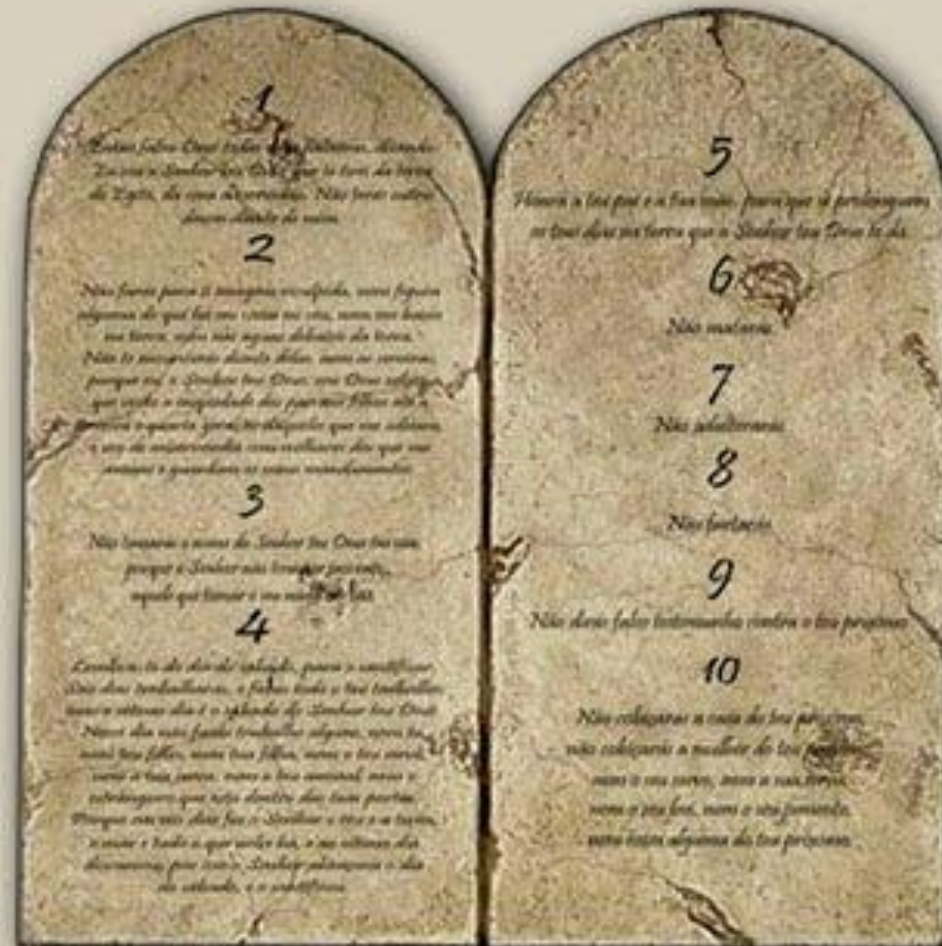 1
Então falou Deus todas estas palavras, dizendo:
Eu sou o Senhor teu Deus, que te tirei da terra
do Egito, da casa da servidão. Não terás outros
deuses diante de mim.
2
Não farás para ti imagem esculpida, nem figura
alguma do que há em cima no céu, nem em baixo
na terra, nem nas águas debaixo da terra.
Não te encurvarás diante delas, nem as servirás;
porque eu, o Senhor teu Deus, sou Deus zeloso,
que visito a iniquidade dos pais nos filhos até a
terceira e quarta geração daqueles que me odeiam,
e uso de misericórdia com milhares dos que me
amam e guardam os meus mandamentos.
3
Não tomarás o nome do Senhor teu Deus em vão;
porque o Senhor não terá por inocente
aquele que tomar o seu nome em vão.
4
Lembra-te do dia do sábado, para o santificar.
Seis dias trabalharás, e farás todo o teu trabalho;
mas o sétimo dia é o sábado do Senhor teu Deus.
Nesse dia não farás trabalho algum, nem tu,
nem teu filho, nem tua filha, nem o teu servo,
nem a tua serva, nem o teu animal, nem o
estrangeiro que está dentro das tuas portas.
Porque em seis dias fez o Senhor o céu e a terra,
o mar e tudo o que neles há, e ao sétimo dia
descansou; por isso o Senhor abençoou o dia
do sábado, e o santificou.
5
Honra a teu pai e a tua mãe, para que se prolonguem
os teus dias na terra que o Senhor teu Deus te dá.
6
Não matarás.
7
Não adulterarás.
8
Não furtarás.
9
Não dirás falso testemunho contra o teu próximo.
10
Não cobiçarás a casa do teu próximo,
não cobiçarás a mulher do teu próximo,
nem o seu servo, nem a sua serva,
nem o seu boi, nem o seu jumento,
nem coisa alguma do teu próximo.